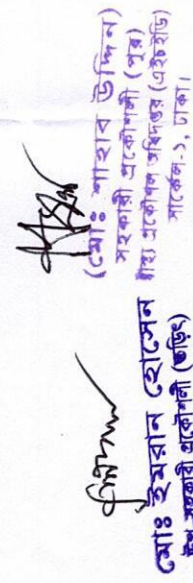 মোঃ ইমরান হোসেন
উপ সহকারী প্রকৌশলী (তড়িৎ)
(মোঃ শাহাব উদ্দিন)
সহকারী প্রকৌশলী (পুর)
স্বাস্থ্য প্রকৌশল অধিদপ্তর (এইচইডি)
সার্কেল-১, ঢাকা।